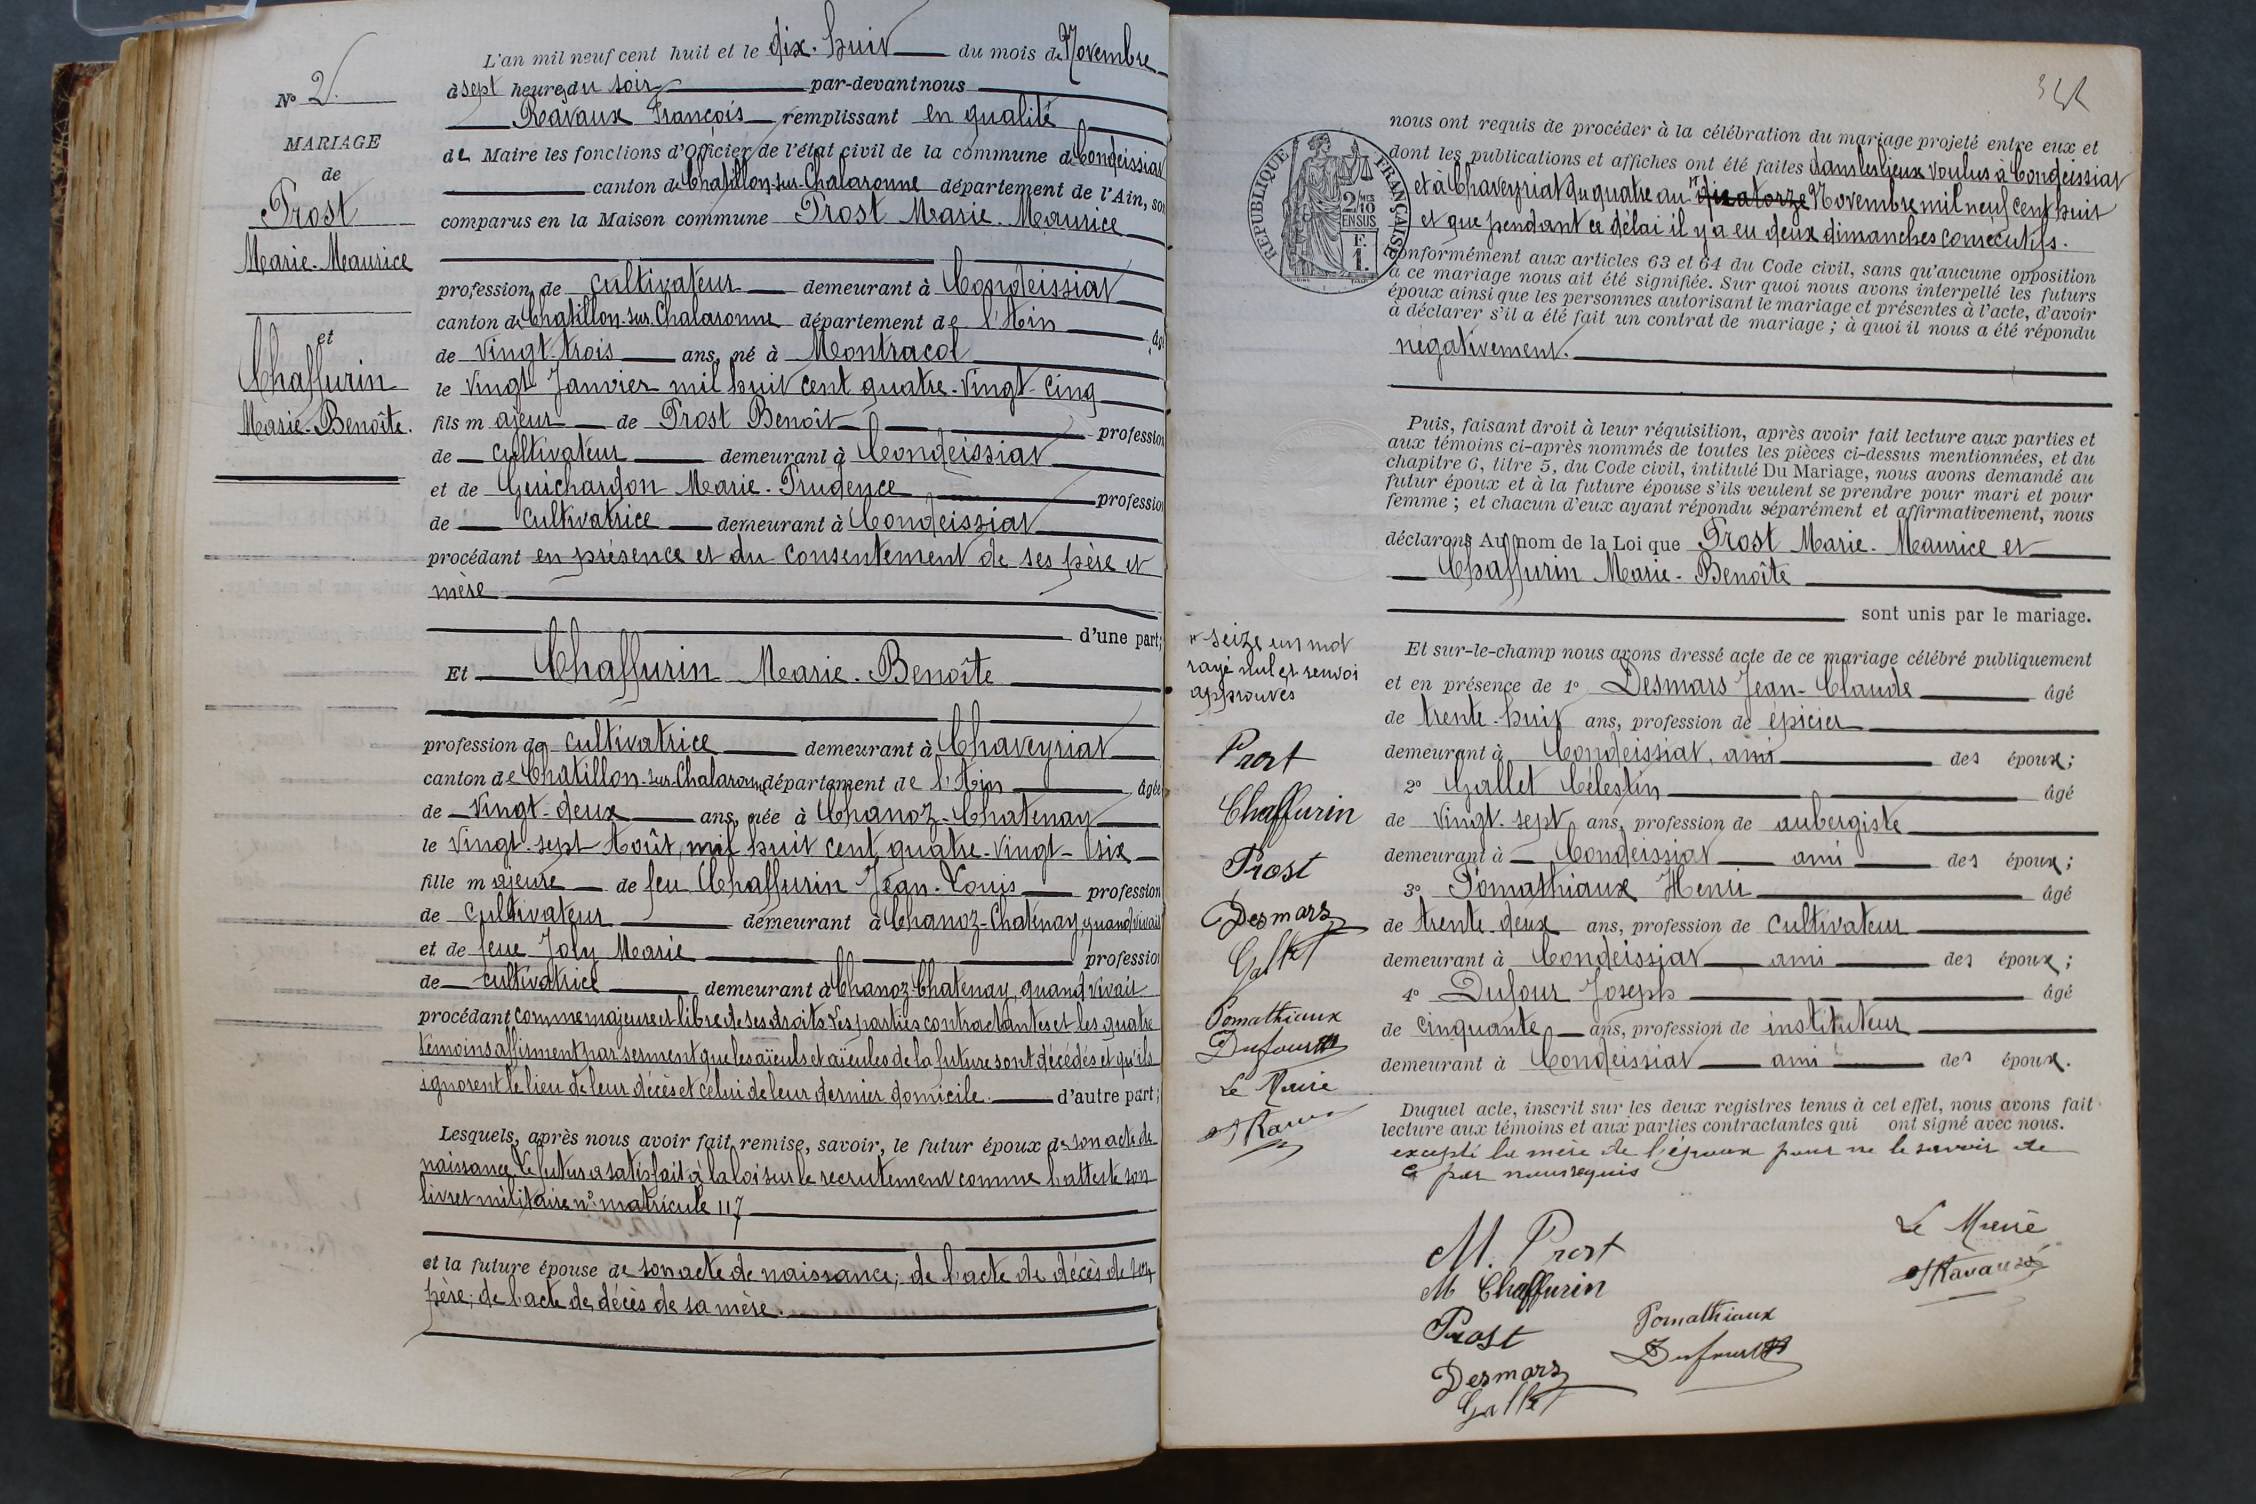 N° 2
MARIAGE
de
Prost
Marie-Maurice
et
Chaffurin
Marie-Benoîte.
L'an mil neuf cent huit et le dix-huit du mois de Novembre
à sept heures du soir par-devant nous
Ravaux François remplissant en qualité
de Maire les fonctions d'Officier de l'état civil de la commune de Condeissiat
canton de Chatillon-sur-Chalaronne département de l'Ain, son
comparus en la Maison commune Prost Marie-Maurice
profession de cultivateur demeurant à Condeissiat
canton de Chatillon-sur-Chalaronne département de l'Ain âgé
de vingt-trois ans, né à Montracol
le vingt Janvier mil huit cent quatre-vingt-cinq
fils majeur de Prost Benoît profession
de cultivateur demeurant à Condeissiat
et de Guichardon Marie-Prudence profession
de cultivatrice demeurant à Condeissiat
procédant en présence et du consentement de ses père et
mère
d'une part;
Et Chaffurin Marie-Benoîte
profession de cultivatrice demeurant à Chaveyriat
canton de Chatillon-sur-Chalaronne département de l'Ain âgée
de vingt-deux ans, née à Chanoz-Chatenay
le vingt-sept Août, mil huit cent quatre-vingt-six
fille majeure de feu Chaffurin Jean-Louis profession
de cultivateur demeurant à Chanoz-Chatenay, quand vivait
et de feue Joly Marie profession
de cultivatrice demeurant à Chanoz Chatenay, quand vivait
procédant comme majeure et libre de ses droits. Les parties contractantes et les quatre
témoins affirment par serment que les aïeuls et aïeules de la future sont décédés et qu'ils
ignorent le lieu de leur décès et celui de leur dernier domicile. d'autre part;
Lesquels, après nous avoir fait remise, savoir, le futur époux de son acte de
naissance. Le futur a satisfait à la loi sur le recrutement comme l'atteste son
livret militaire n° matricule 117
et la future épouse de son acte de naissance; de l'acte de décès de son
père; de l'acte de décès de sa mère.
REPUBLIQUE FRANÇAISE
2/10 EN SUS
F. 1.
nous ont requis de procéder à la célébration du mariage projeté entre eux et
dont les publications et affiches ont été faites dans les lieux voulus à Condeissiat
et à Chaveyriat du quatre au quatorze Novembre mil neuf cent huit
et que pendant ce délai il y a eu deux dimanches consécutifs.
conformément aux articles 63 et 64 du Code civil, sans qu'aucune opposition
à ce mariage nous ait été signifiée. Sur quoi nous avons interpellé les futurs
époux ainsi que les personnes autorisant le mariage et présentes à l'acte, d'avoir
à déclarer s'il a été fait un contrat de mariage; à quoi il nous a été répondu
négativement.
Puis, faisant droit à leur réquisition, après avoir fait lecture aux parties et
aux témoins ci-après nommés de toutes les pièces ci-dessus mentionnées, et du
chapitre 6, titre 5, du Code civil, intitulé Du Mariage, nous avons demandé au
futur époux et à la future épouse s'ils veulent se prendre pour mari et pour
femme; et chacun d'eux ayant répondu séparément et affirmativement, nous
déclarons Au nom de la Loi que Prost Marie-Maurice et
Chaffurin Marie-Benoîte
sont unis par le mariage.
seize un mot
rayé nul et renvoi
approuvés
Prost
Chaffurin
Prost
Desmars
Gallet
Pomathiaux
Dufour
Le Maire
Ravaux
Et sur-le-champ nous avons dressé acte de ce mariage célébré publiquement
et en présence de 1° Desmars Jean-Claude âgé
de trente-huit ans, profession de épicier
demeurant à Condeissiat, ami des époux;
2° Gallet Célestin âgé
de vingt-sept ans, profession de aubergiste
demeurant à Condeissiat ami des époux;
3° Pomathiaux Henri âgé
de trente-deux ans, profession de cultivateur
demeurant à Condeissiat ami des époux;
4° Dufour Joseph âgé
de cinquante ans, profession de instituteur
demeurant à Condeissiat ami des époux.
Duquel acte, inscrit sur les deux registres tenus à cet effet, nous avons fait
lecture aux témoins et aux parties contractantes qui ont signé avec nous.
excepté la mère de l'époux pour ne le savoir de
ce par nous requis
M. Prost
M Chaffurin
Prost
Desmars
Gallet
Pomathiaux
Dufour
Le Maire
Ravaux